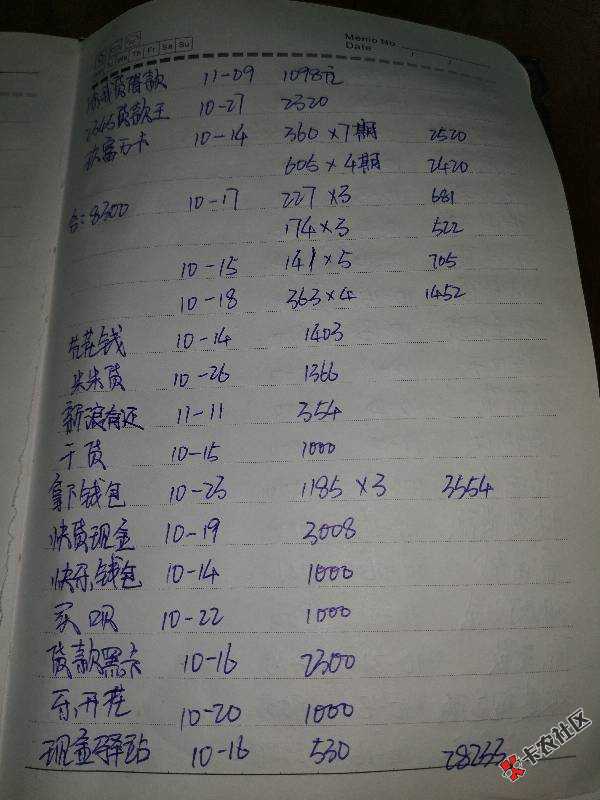 Memo No.
Mo Tu We Th Fr Sa Su
Date / /
贷借款 11-09 1098元
2345贷款王 10-27 2320
万卡 10-14 360×7期 2520
605×4期 2420
合:8300 10-17 227×3 681
174×3 522
10-15 141×5 705
10-18 363×4 1452
花钱 10-14 1403
贷 10-26 1366
新浪有还 11-11 354
千贷 10-15 1000
拿下钱包 10-23 1185×3 3554
快贷现金 10-19 3008
快乐钱包 10-14 1000
买呗 10-22 1000
贷款黑卡 10-16 2300
开花 10-20 1000
现金驿站 10-16 530 28233
卡农社区